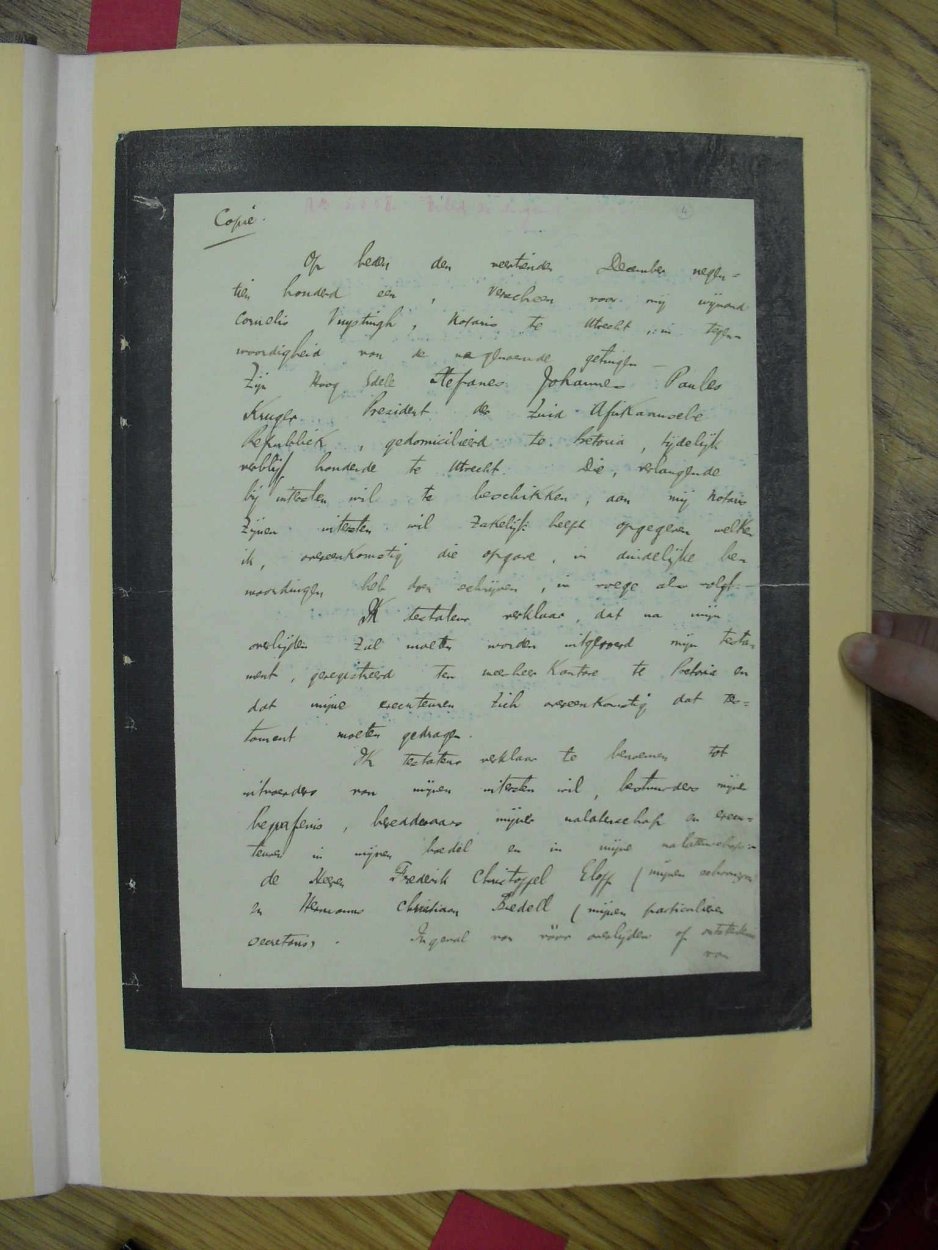 Copie.
Op heden den veertienden December negen-
tien honderd een, verscheen voor mij Wijnand
Cornelis Nuystingh, Notaris te Utrecht, in tegen-
woordigheid van de na genoemde getuigen —
Zijn Hoog Edele Stefanes Johannes Paules
Kruger President der Zuid Afrikaansche
Republiek, gedomicilieerd te Pretoria, tijdelijk
verblijf houdende te Utrecht. Die, verlangende
bij uitersten wil te beschikken, aan mij Notaris
zijnen uitersten wil zakelijk heeft opgegeven welken
ik, overeenkomstig die opgave, in duidelijke be-
woordingen heb doen schrijven, in voege als volgt.
Ik testateur verklaar, dat na mijn
overlijden zal moeten worden uitgevoerd mijn testa-
ment, geregistreerd ten weesheer Kantore te Pretoria en
dat mijne executeuren zich overeenkomstig dat tes-
tament moeten gedragen.
Ik testateur verklaar te benoemen tot
uitvoerders van mijnen uitersten wil, bestuurders mijner
begrafenis, beredderaars mijner nalatenschap en execu-
teuren in mijnen boedel en in mijne nalatenschap:
de Heeren Frederik Christoffel Eloff (mijnen schoonzoon
en Hermanus Christiaan Bredell (mijnen particulieren
secretaris). Ingeval van vóór overlijden of ontstentenis
van